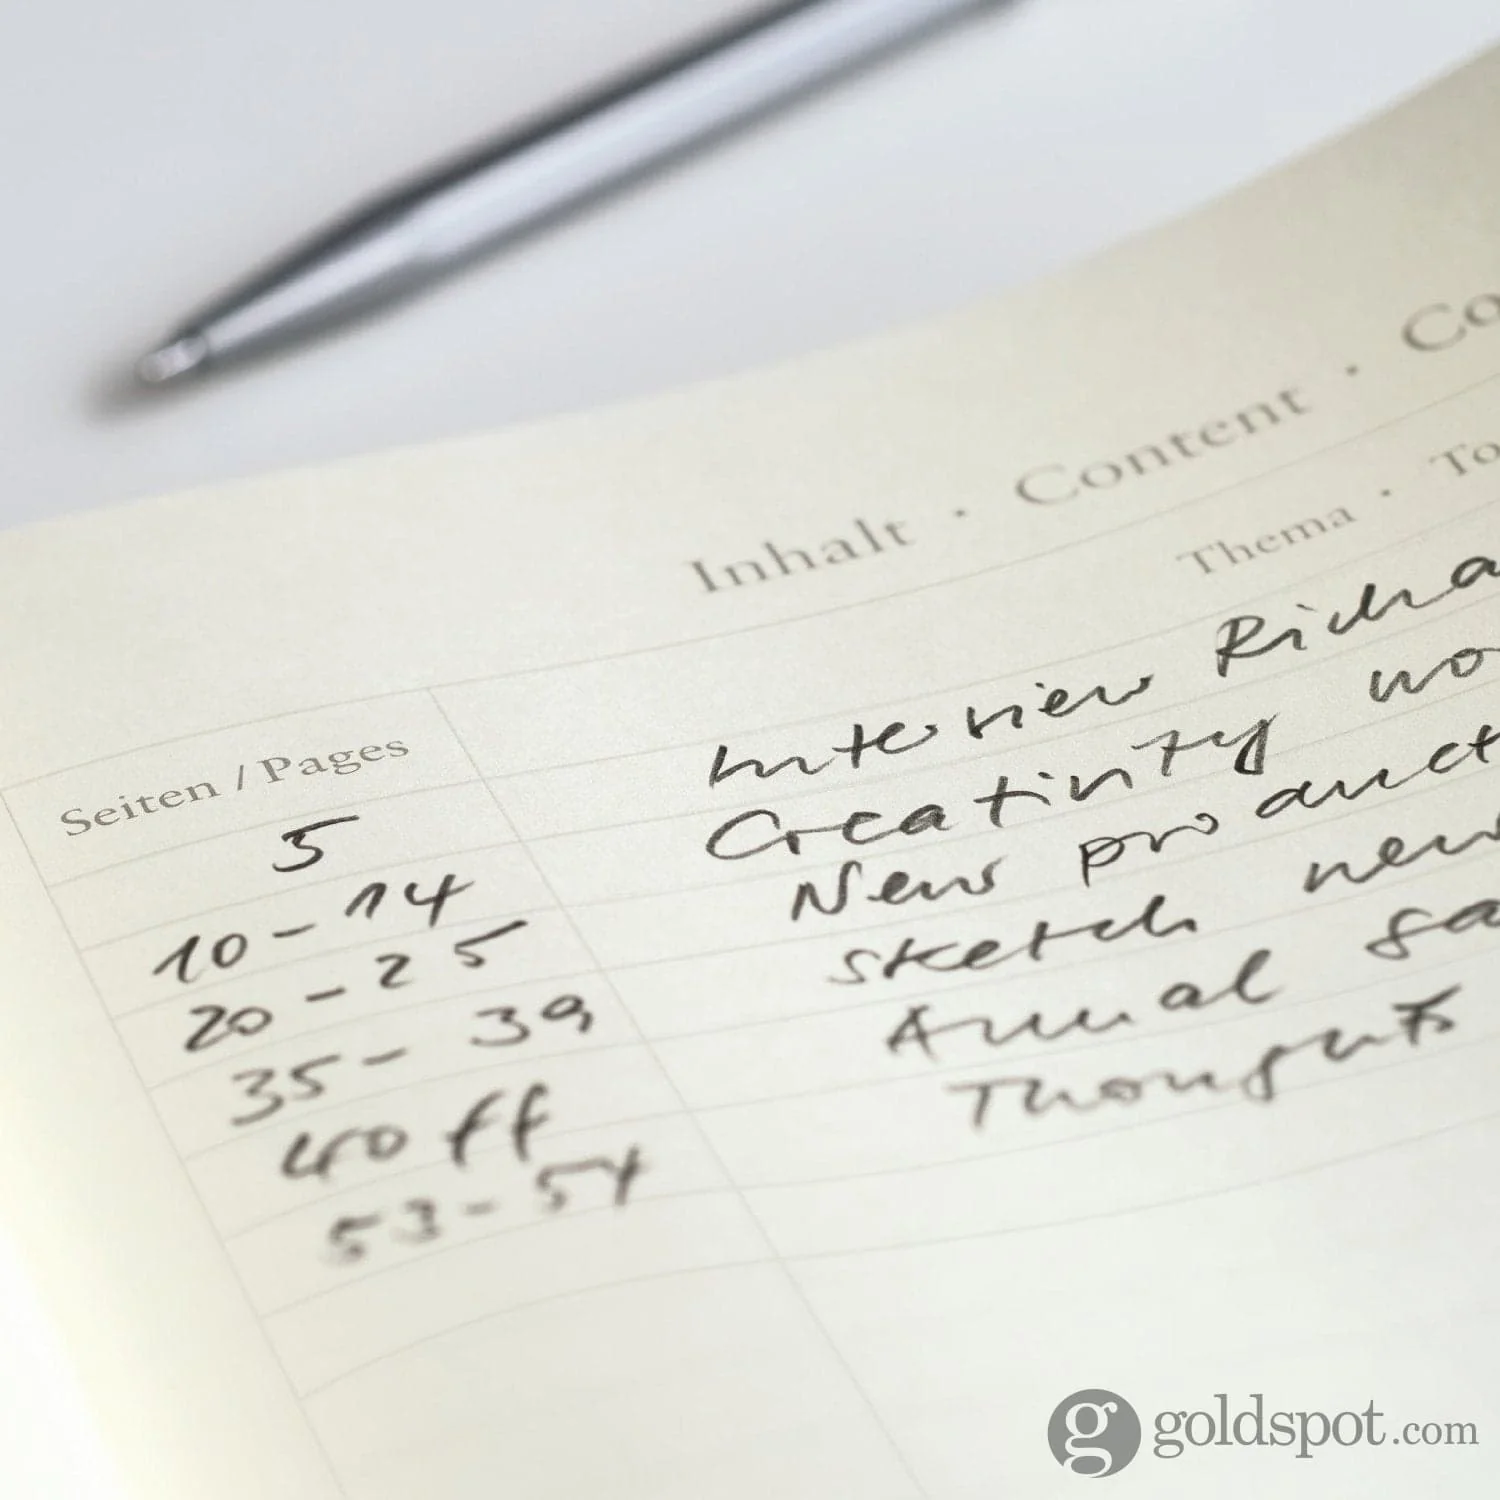 Inhalt · Content · Co
Thema · To
Seiten / Pages
5 Interview Richa
10 - 14 Creativity wo
20 - 25 New product
35 - 39 Sketch new
40 ff Annual ga
53 - 54 Thoughts
goldspot.com